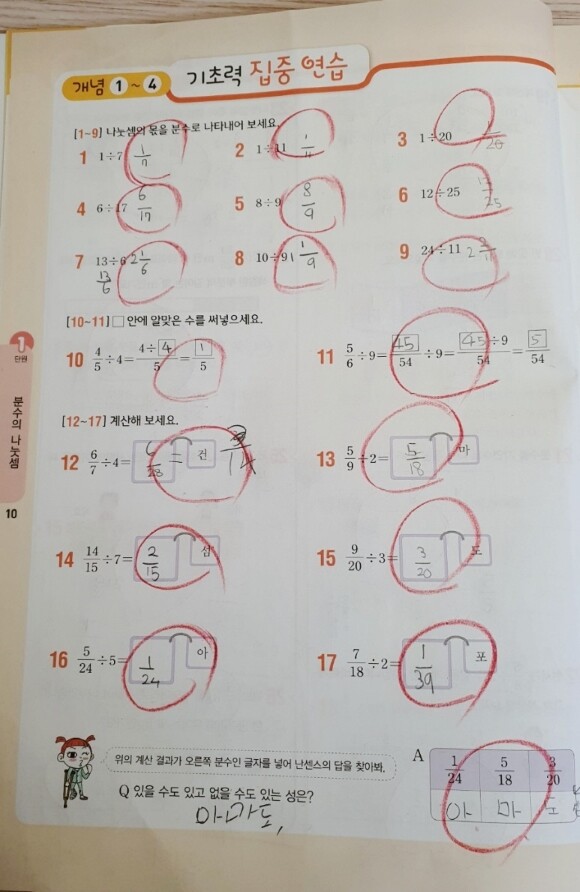 개념 1 ~ 4 기초력 집중 연습
[1~9] 나눗셈의 몫을 분수로 나타내어 보세요.
1 1÷7 1/7
2 1÷11 1/11
3 1÷20 1/20
4 6÷17 6/17
5 8÷9 8/9
6 12÷25 12/25
7 13÷6 2 1/6
13/6
8 10÷9 1 1/9
9 24÷11 2 2/11
[10~11] □ 안에 알맞은 수를 써넣으세요.
10 4/5÷4=4÷4/5=1/5
11 5/6÷9=45/54÷9=45÷9/54=5/54
[12~17] 계산해 보세요.
12 6/7÷4= 6/28 = 건 3/14
13 5/9÷2= 5/18 마
14 14/15÷7= 2/15 섬
15 9/20÷3= 3/20 도
16 5/24÷5= 1/24 아
17 7/18÷2= 1/39 포
1
단원
분수의 나눗셈
10
위의 계산 결과가 오른쪽 분수인 글자를 넣어 난센스의 답을 찾아봐.
Q 있을 수도 있고 없을 수도 있는 성은?
아마도,
A 1/24 5/18 3/20
아 마 도